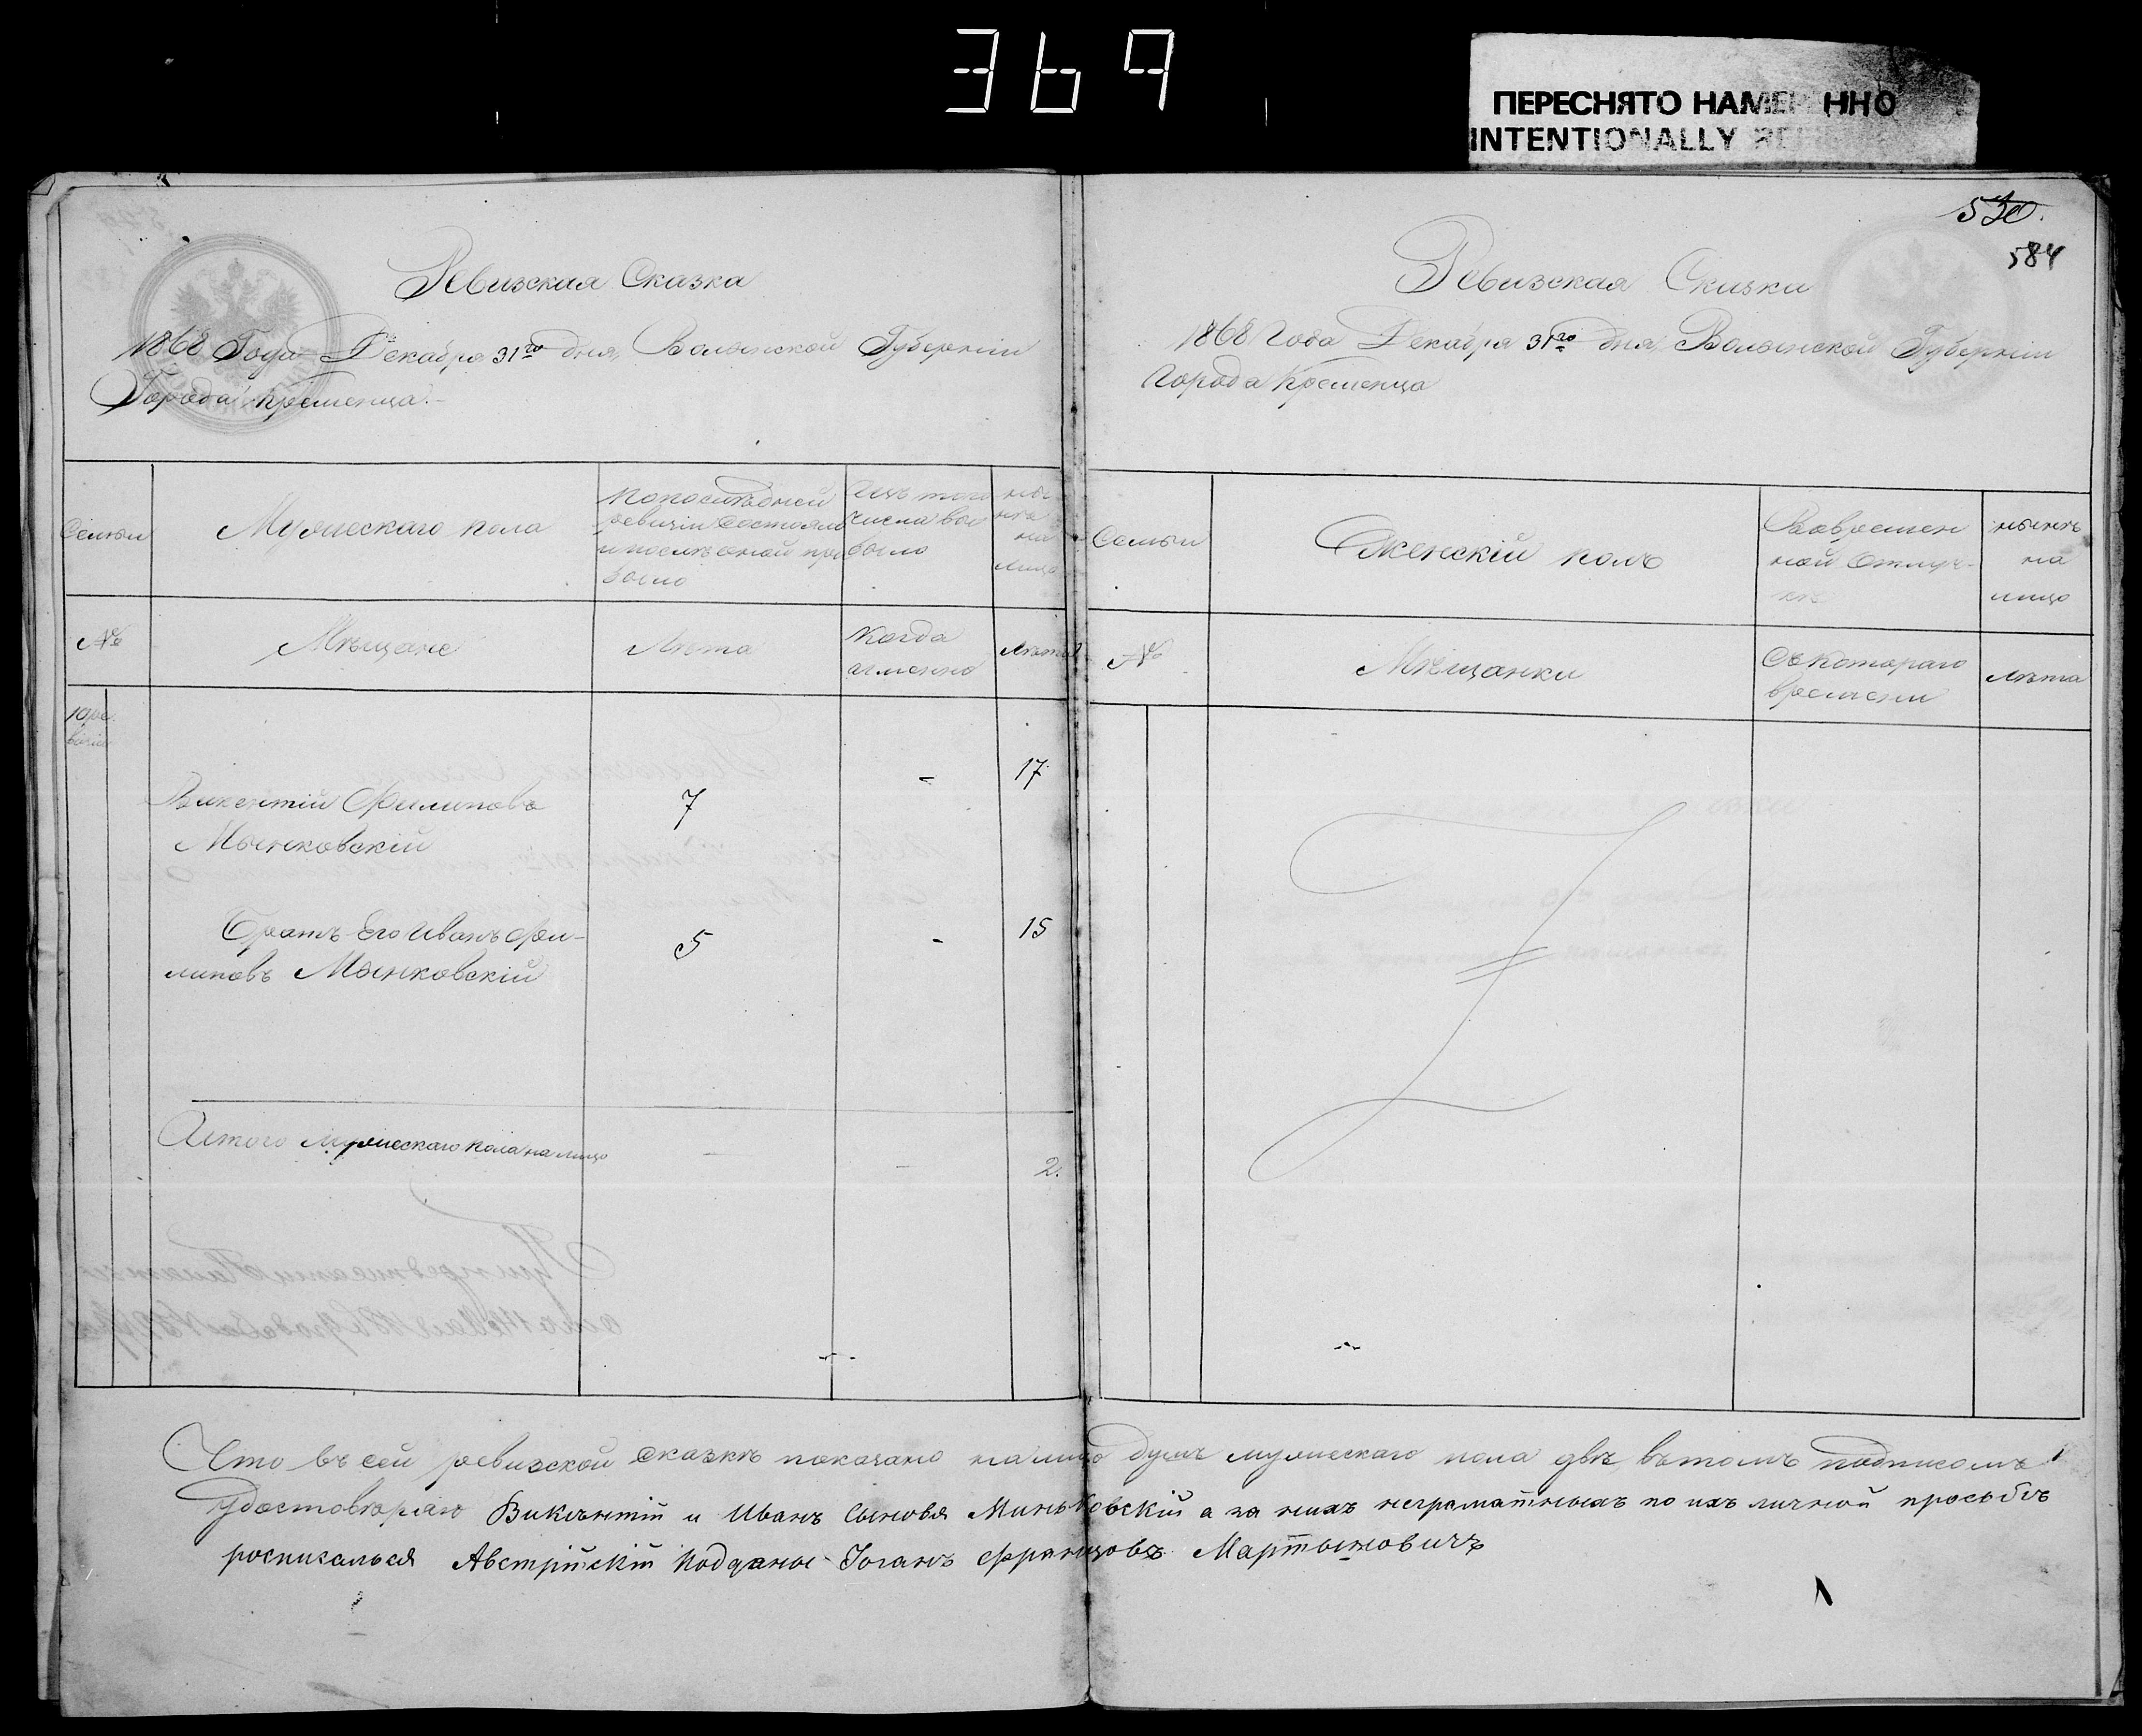 369
ПЕРЕСНЯТО НАМЕ ННО
INTENTIONALLY
530.
584
Ревизская Сказка
1868 Года Декабря 31го дня, Волынской Губернии
Города Кременца.
Семьи
Мужескаго пола
По последней
ревизіи состояло
и после оной при
было
Изъ того
числа вы
было
ны
не
на
лицо
№
Мѣщане
Лѣта
Когда
именно
Лѣта
10 ре
визіи
Викентій Филиповъ
Мынковскій
7
-
17
Братъ Его Иванъ Фи-
липовъ Мынковскій
5
-
15
Итого мужескаго пола на лицо
-
-
2.
Ревизская Сказки
1868 Года Декабря 31го дня, Волынской Губерніи
Города Кременца
Семьи
Женскій полъ
Во времен
ной отлуч-
кѣ
нынѣ
на
лицо
№
Мѣщанки
Съ котораго
времени
Лѣта
Что въ сей ревизской сказкѣ показано на лицо душъ мужескаго пола двѣ, въ томъ подписомъ
Удостовѣряю Викѣнтій и Иванъ Сыновья Миньковскій а за нихъ неграматныхъ по ихъ личной просьбѣ
росписалься Австрійскій Подданые Іоганъ Францовъ Мартыновичъ